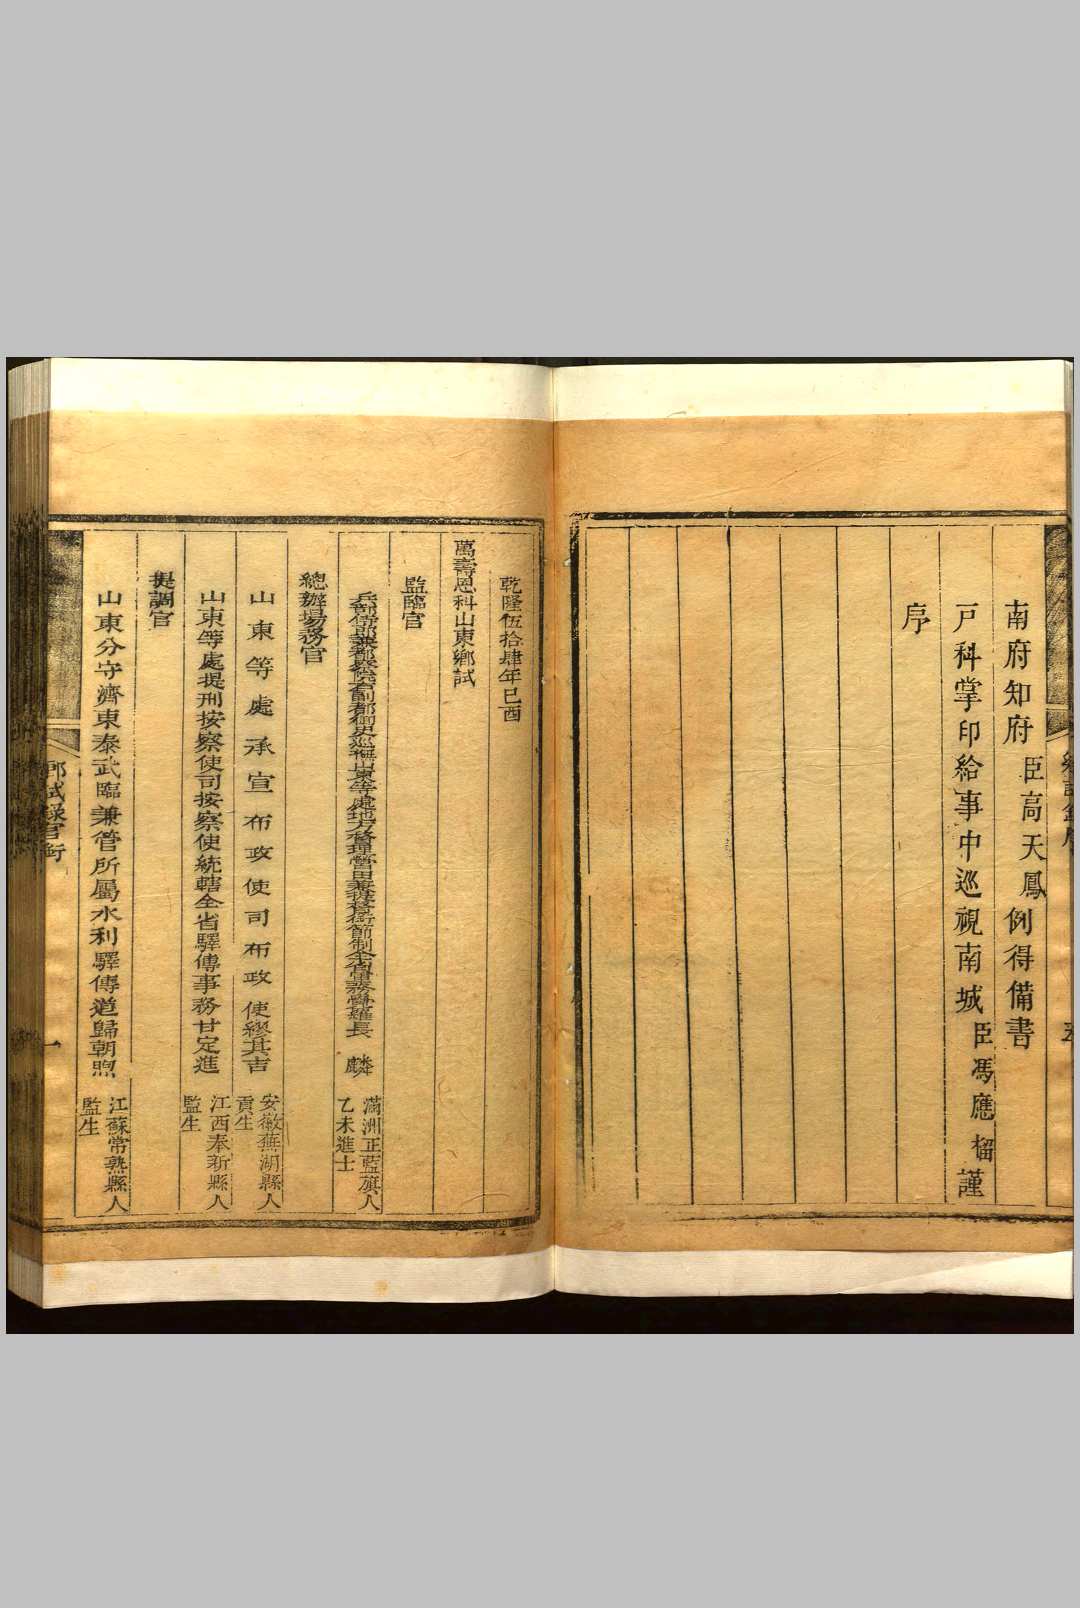 南府知府臣高天鳳例得備書
戶科掌印給事中巡視南城臣馮應榴謹
序
乾隆伍拾肆年己酉
萬壽恩科山東鄉試
監臨官
兵部侍郎兼都察院右副都御史巡撫山東等處地方督理營田兼提督銜節制全省軍務覺羅長麟
滿洲正藍旗人
乙未進士
總辦場務官
山東等處承宣布政使司布政使繆其吉
安徽蕪湖縣人
貢生
山東等處提刑按察使司按察使統轄全省驛傳事務甘定進
江西奉新縣人
監生
提調官
山東分守濟東泰武臨兼管所屬水利驛傳道歸朝煦
江蘇常熟縣人
監生
鄉試錄官銜
一